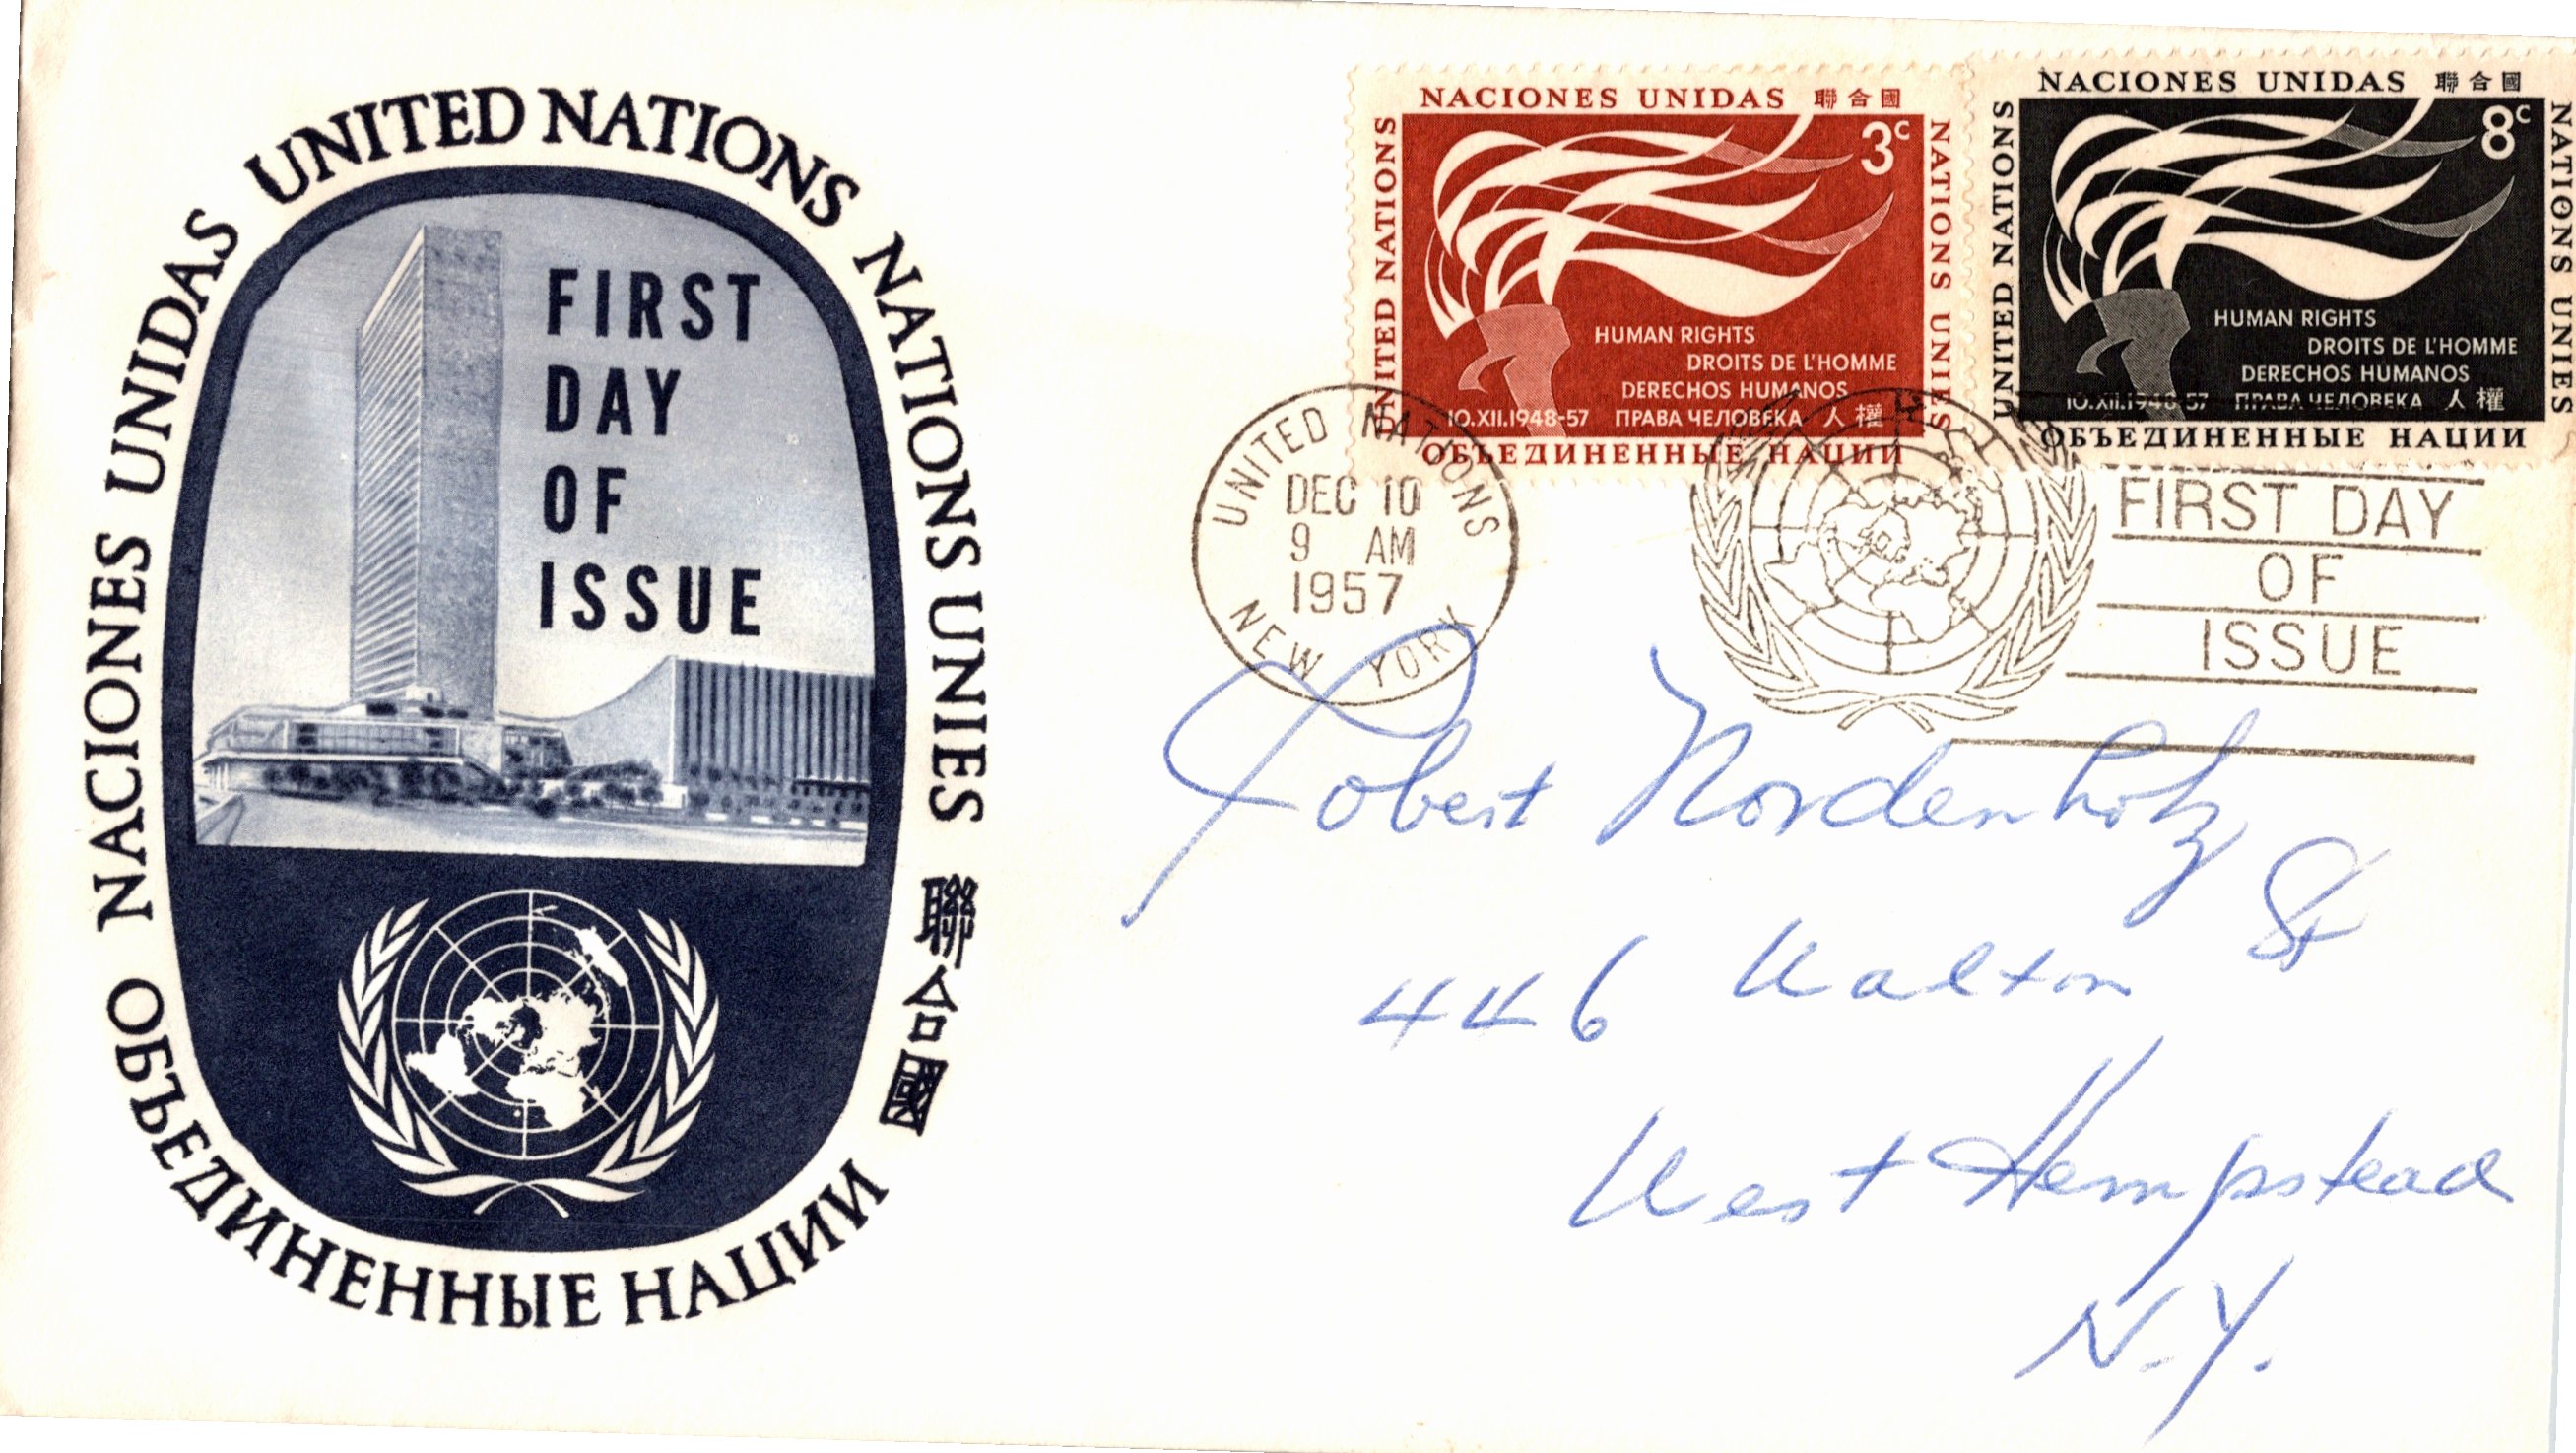 UNITED NATIONS
NATIONS UNIES
聯合國
ОБЪЕДИНЕННЫЕ НАЦИИ
NACIONES UNIDAS
FIRST
DAY
OF
ISSUE
NACIONES UNIDAS 聯合國
UNITED NATIONS
NATIONS UNIES
3c
HUMAN RIGHTS
DROITS DE L'HOMME
DERECHOS HUMANOS
10.XII.1948-57 ПРАВА ЧЕЛОВЕКА 人權
ОБЪЕДИНЕННЫЕ НАЦИИ
NACIONES UNIDAS 聯合國
UNITED NATIONS
NATIONS UNIES
8c
HUMAN RIGHTS
DROITS DE L'HOMME
DERECHOS HUMANOS
10.XII.1948-57 ПРАВА ЧЕЛОВЕКА 人權
ОБЪЕДИНЕННЫЕ НАЦИИ
UNITED NATIONS
DEC 10
9 AM
1957
NEW YORK
FIRST DAY
OF
ISSUE
Robert Nordenholz
446 Walton St
West Hempstead
N.Y.